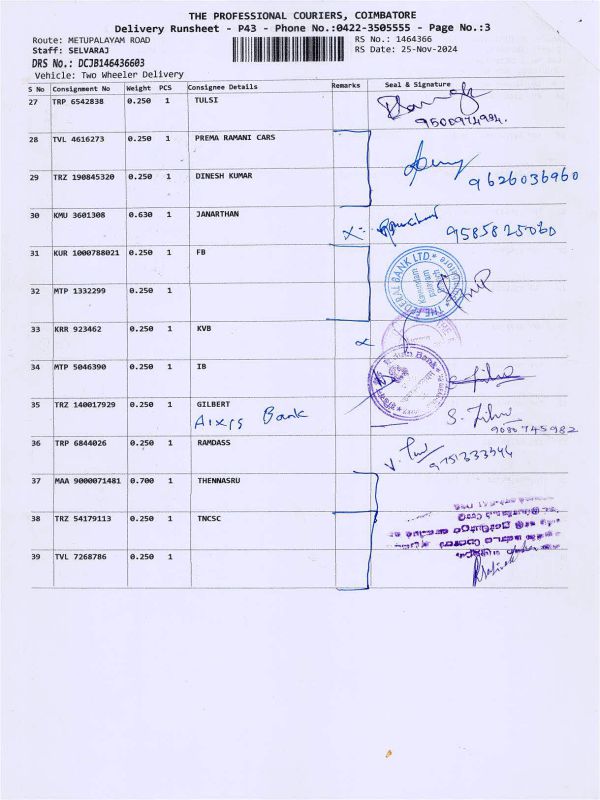 THE PROFESSIONAL COURIERS, COIMBATORE
Delivery Runsheet - P43 - Phone No.:0422-3505555 - Page No.:3
Route: METUPALAYAM ROAD RS No.: 1464366
Staff: SELVARAJ RS Date: 25-Nov-2024
DRS No.: DCJB146436603
Vehicle: Two Wheeler Delivery
S No Consignment No Weight PCS Consignee Details Remarks Seal & Signature
27 TRP 6542838 0.250 1 TULSI
28 TVL 4616273 0.250 1 PREMA RAMANI CARS
29 TRZ 190845320 0.250 1 DINESH KUMAR 9626036960
30 KMU 3601308 0.630 1 JANARTHAN 9585825060
31 KUR 1000788021 0.250 1 FB THE FEDERAL BANK LTD.
32 MTP 1332299 0.250 1
33 KRR 923462 0.250 1 KVB
34 MTP 5046390 0.250 1 IB
35 TRZ 140017929 0.250 1 GILBERT
Aixis Bank 9080745982
36 TRP 6844026 0.250 1 RAMDASS 9751333544
37 MAA 9000071481 0.700 1 THENNASRU
38 TRZ 54179113 0.250 1 TNCSC
39 TVL 7268786 0.250 1